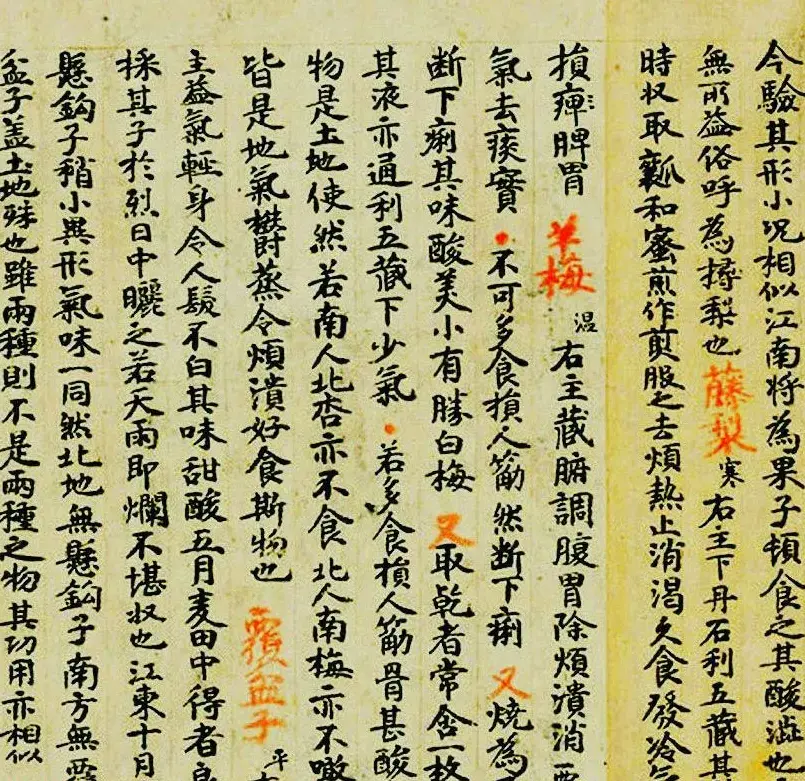 今驗其形小況相似江南將為果子頓食之其酸澁也
無所益俗呼為㯶梨也藤梨寒右主下丹石利五藏其
時收取瓤和蜜煎作煎服之去煩熱止消渴久食發冷氣
損痺脾胃羊梅温右主藏腑調腹胃除煩潰消
氣去痰實不可多食損人筋然断下痢又燒為
断下痢其味酸美小有勝白梅又取乾者常含一枚
其液亦通利五藏下少氣若多食損人筋骨甚酸
物是土地使然若南人北杏亦不食北人南梅亦不噉
皆是地氣欝蒸令煩潰好食斯物也覆盆子平
主益氣輕身令人髮不白其味甜酸五月麦田中得者良
採其子於烈日中曬之若天雨即爛不堪收也江東十月
懸鈎子稍小異形氣味一同然北地無懸鈎子南方無覆
盆子盖土地殊也雖兩種則不是兩種之物其功用亦相似